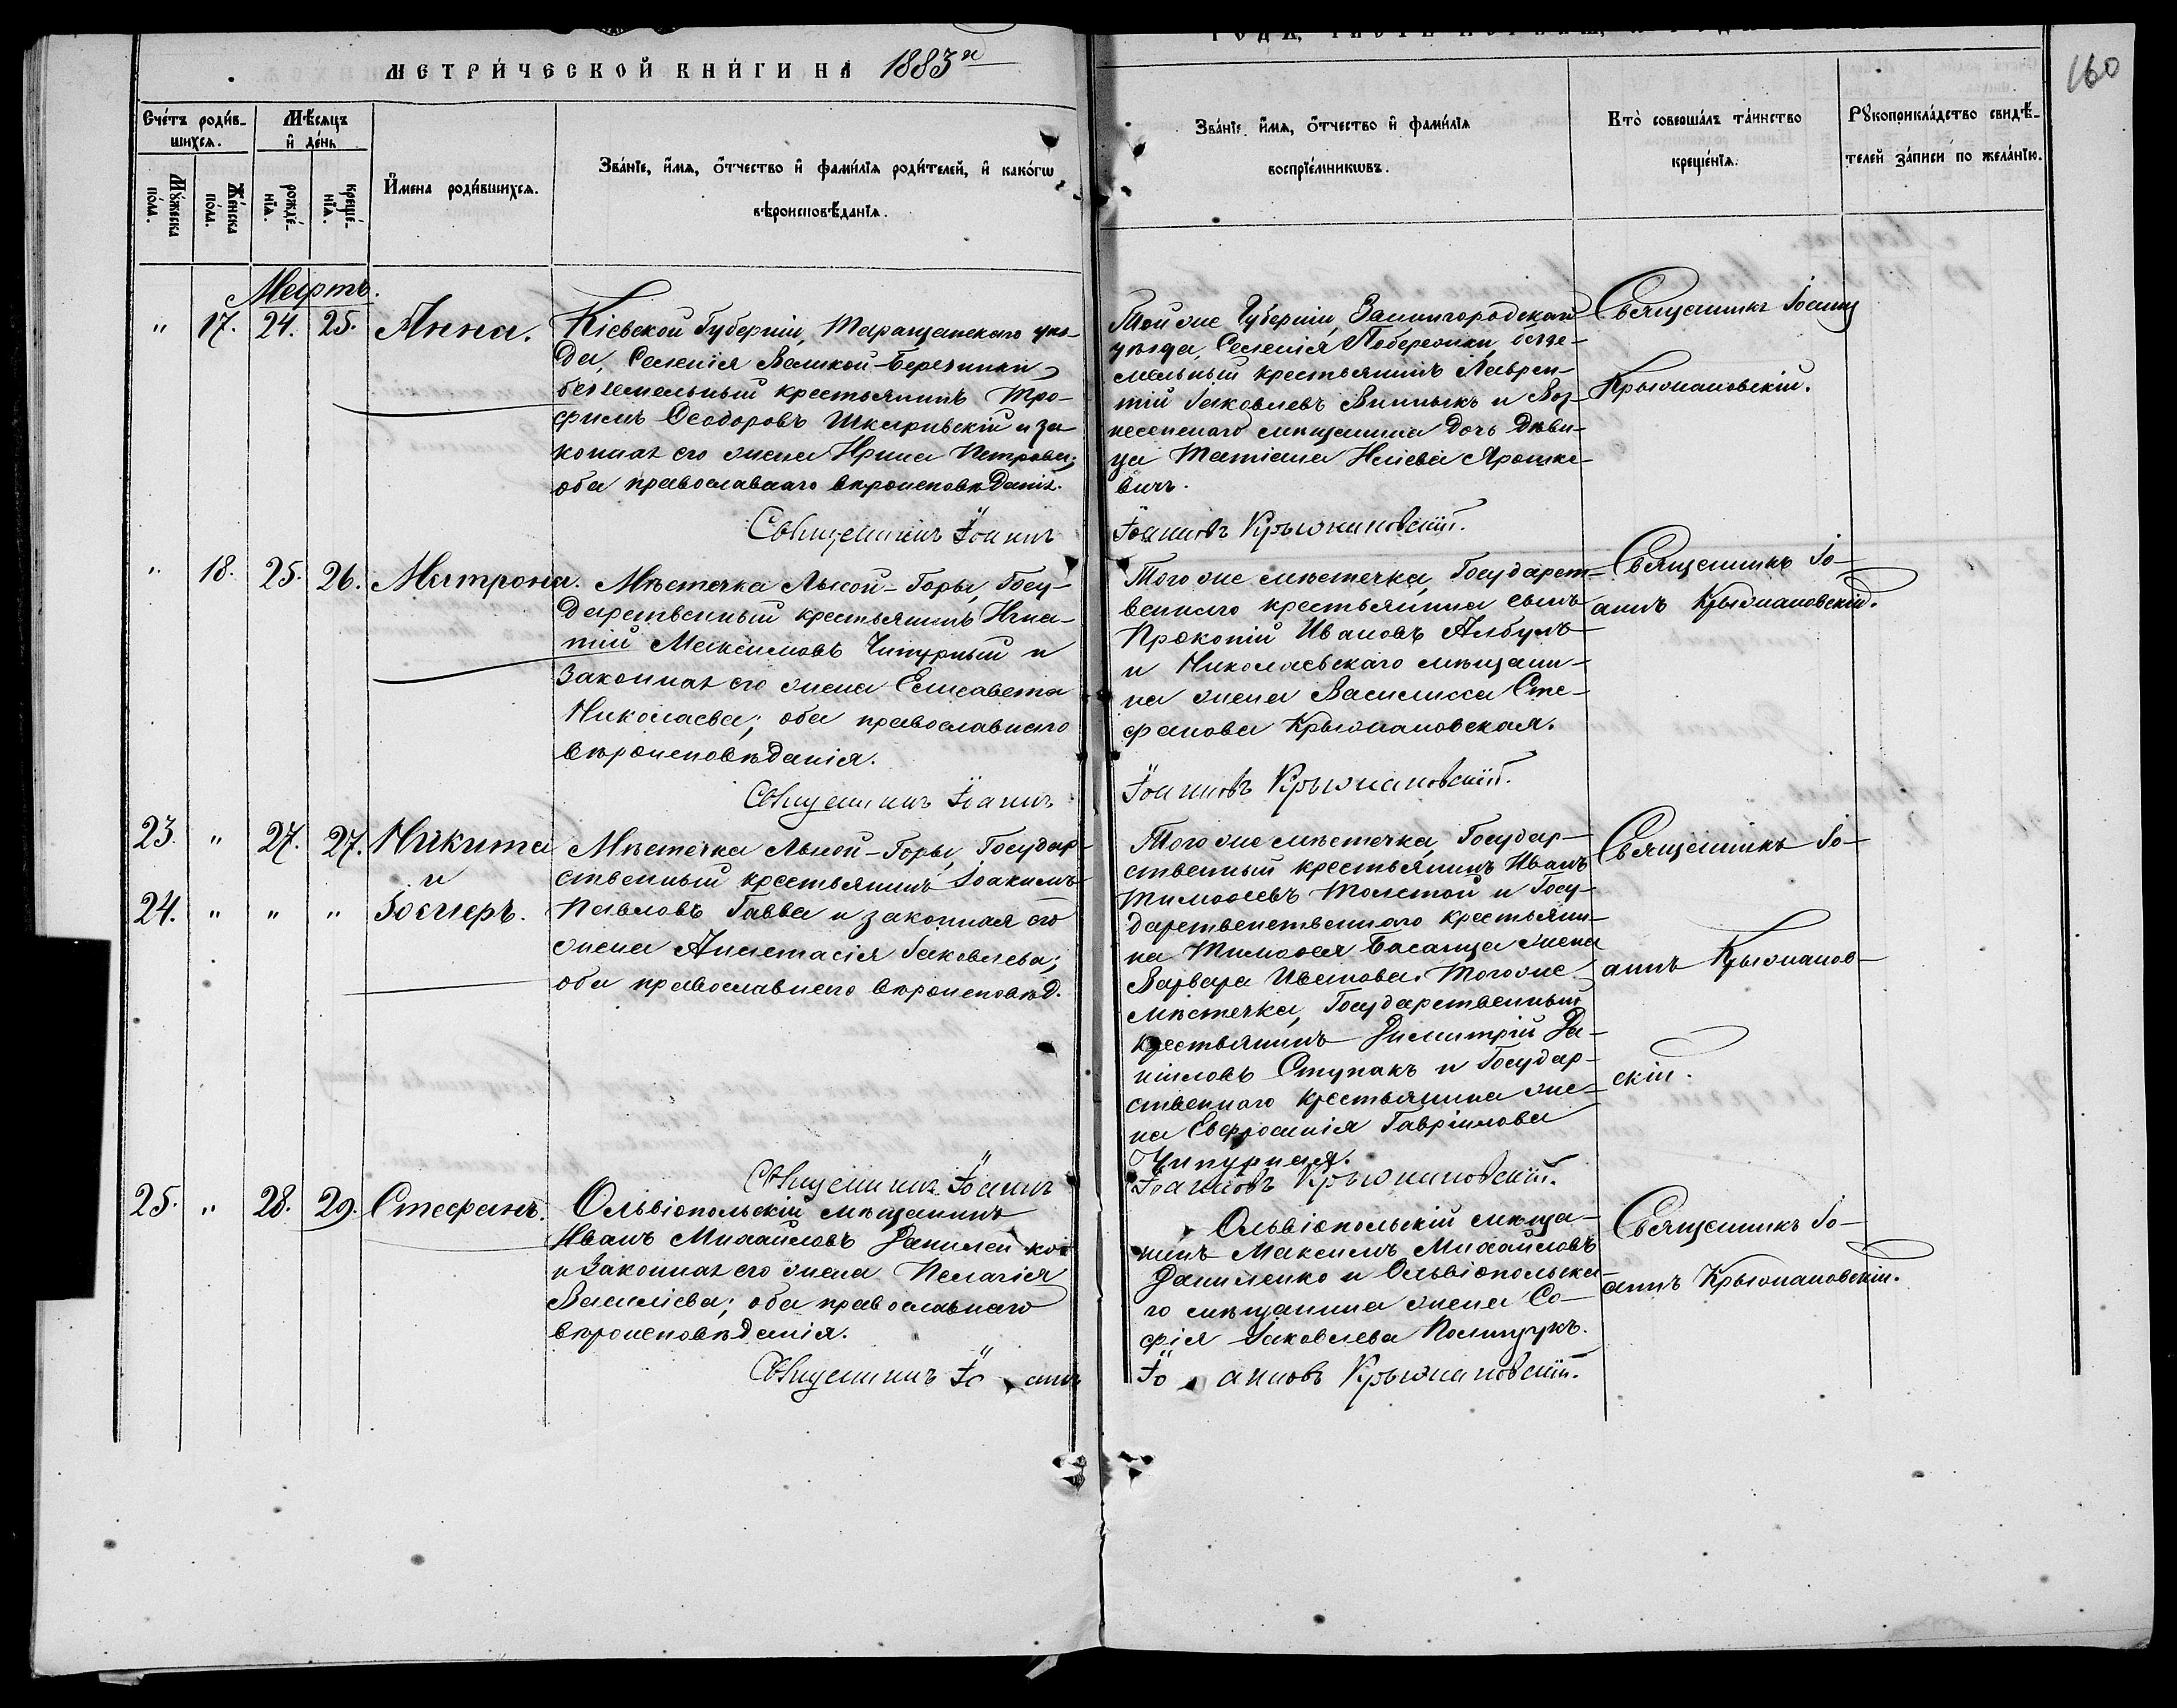 МЕТРИ́ЧЕСКОЙ КНИ́ГИ НА 1883й
160
Сче́тъ роди́в-
шихсѧ.
Мѣ́сѧцъ
и҆ де́нь
Мꙋ́жеска
по́ла.
Же́нска
по́ла.
рожде́-
нїѧ.
креще́-
нїѧ.
И҆мена роди́вшихсѧ.
Зва́нїе, и҆́мѧ, ѻ҆́тчество и҆ фами́лїѧ роди́телей, и҆ како́гѡ
вѣроисповѣ́данїѧ.
Зва́нїе, и҆́мѧ, ѻ҆́тчество и҆ фами́лїѧ
воспрїе́мникѡвъ.
Кто̀ соверша́лъ та́инство
креще́нїѧ.
Рꙋкоприкла́дство свидѣ́-
телей за́писи по жела́нїю.
Мартъ.
" 17. 24. 25. Анна.
Кіевской Губерніи, Таращанскаго уѣз-
да, Селенія Великой-Березянки,
безземельный крестьянинъ Тро-
фимъ Ѳеодоровъ Шкаривскій и за-
конная его жена Ирина Петрова;
оба православнаго вѣроисповѣданія.
Священникъ Іоаннъ
Той же Губерніи, Звенигородскаго
уѣзда, Селенія Побережки, беззе-
мельный крестьянинъ Лаврен-
тій Іаковлевъ Винныкъ и Воз-
несенскаго мѣщанина дочь дѣви-
ца Татіана Иліева Ярошке-
вичъ.
Іоанновъ Крыжановскій.
Священникъ Іоаннъ
Крыжановскій.
" 18. 25. 26. Матрона.
Мѣстечка Лысой-Горы, Госу-
дарственный крестьянинъ Игна-
тій Максимовъ Чипурный и
Законная его жена Елисавета
Николаева; оба православнаго
вѣроисповѣданія.
Священникъ Іоаннъ
Того же мѣстечка, Государст-
веннаго крестьянина сынъ
Прокопій Ивановъ Албулъ
и Николаевскаго мѣщани-
на жена Василисса Сте-
фанова Крыжановская.
Іоанновъ Крыжановскій.
Священникъ Іо-
аннъ Крыжановскій.
23. " 27. 27. Никита
и
24. " " " Іосифъ.
Мѣстечка Лысой-Горы, Государ-
ственный крестьянинъ Іоакимъ
Павловъ Савва и законная его
жена Анастасія Іаковлева;
оба православнаго вѣроисповѣд.
Священникъ Іоаннъ
Того же мѣстечка, Государ-
ственный крестьянинъ Иванъ
Тимоѳеевъ Толстой и Госу-
дарственственнаго крестьяни-
на Тимоѳея жена
Варвара Иванова. Того же
мѣстечка, Государственный
крестьянинъ Димитрій Да-
ніиловъ Ступакъ и Государ-
ственнаго крестьянина же-
на Евфросинія Гавріилова
Чипурная.
Іоанновъ Крыжановскій.
Священникъ Іо-
аннъ Крыжанов-
скій.
25. " 28. 29. Стефанъ.
Ольвіопольскій мѣщанинъ
Иванъ Михайловъ Даниленко
и Законная его жена Пелагія
Василіева; оба православнаго
вѣроисповѣданія.
Священникъ Іо аннъ
Ольвіопольскій мѣща-
нинъ Максимъ Михайловъ
Даниленко и Ольвіопольска-
го мѣщанина жена Со-
фія Іаковлева Полищукъ.
Іо анновъ Крыжановскій.
Священникъ Іо-
аннъ Крыжановскій.